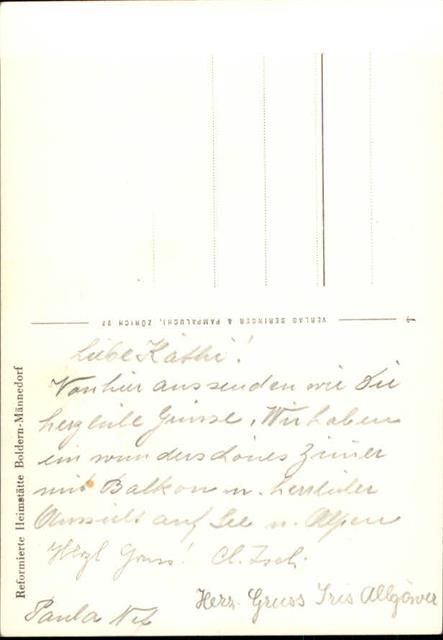 Reformierte Heimstätte Boldern-Männedorf
VERLAG BERINGER & PAMPALUCHI, ZÜRICH 27
Liebe Käthi!
Von hier aus senden wir Dir
herzliche Grüsse. Wir haben
ein wunderschönes Zimer
mit Balkon u. herrlicher
Aussicht auf See u. Alpen
Herzl Gruss!
Herz. Gruss Iris Allgöwer
Paula